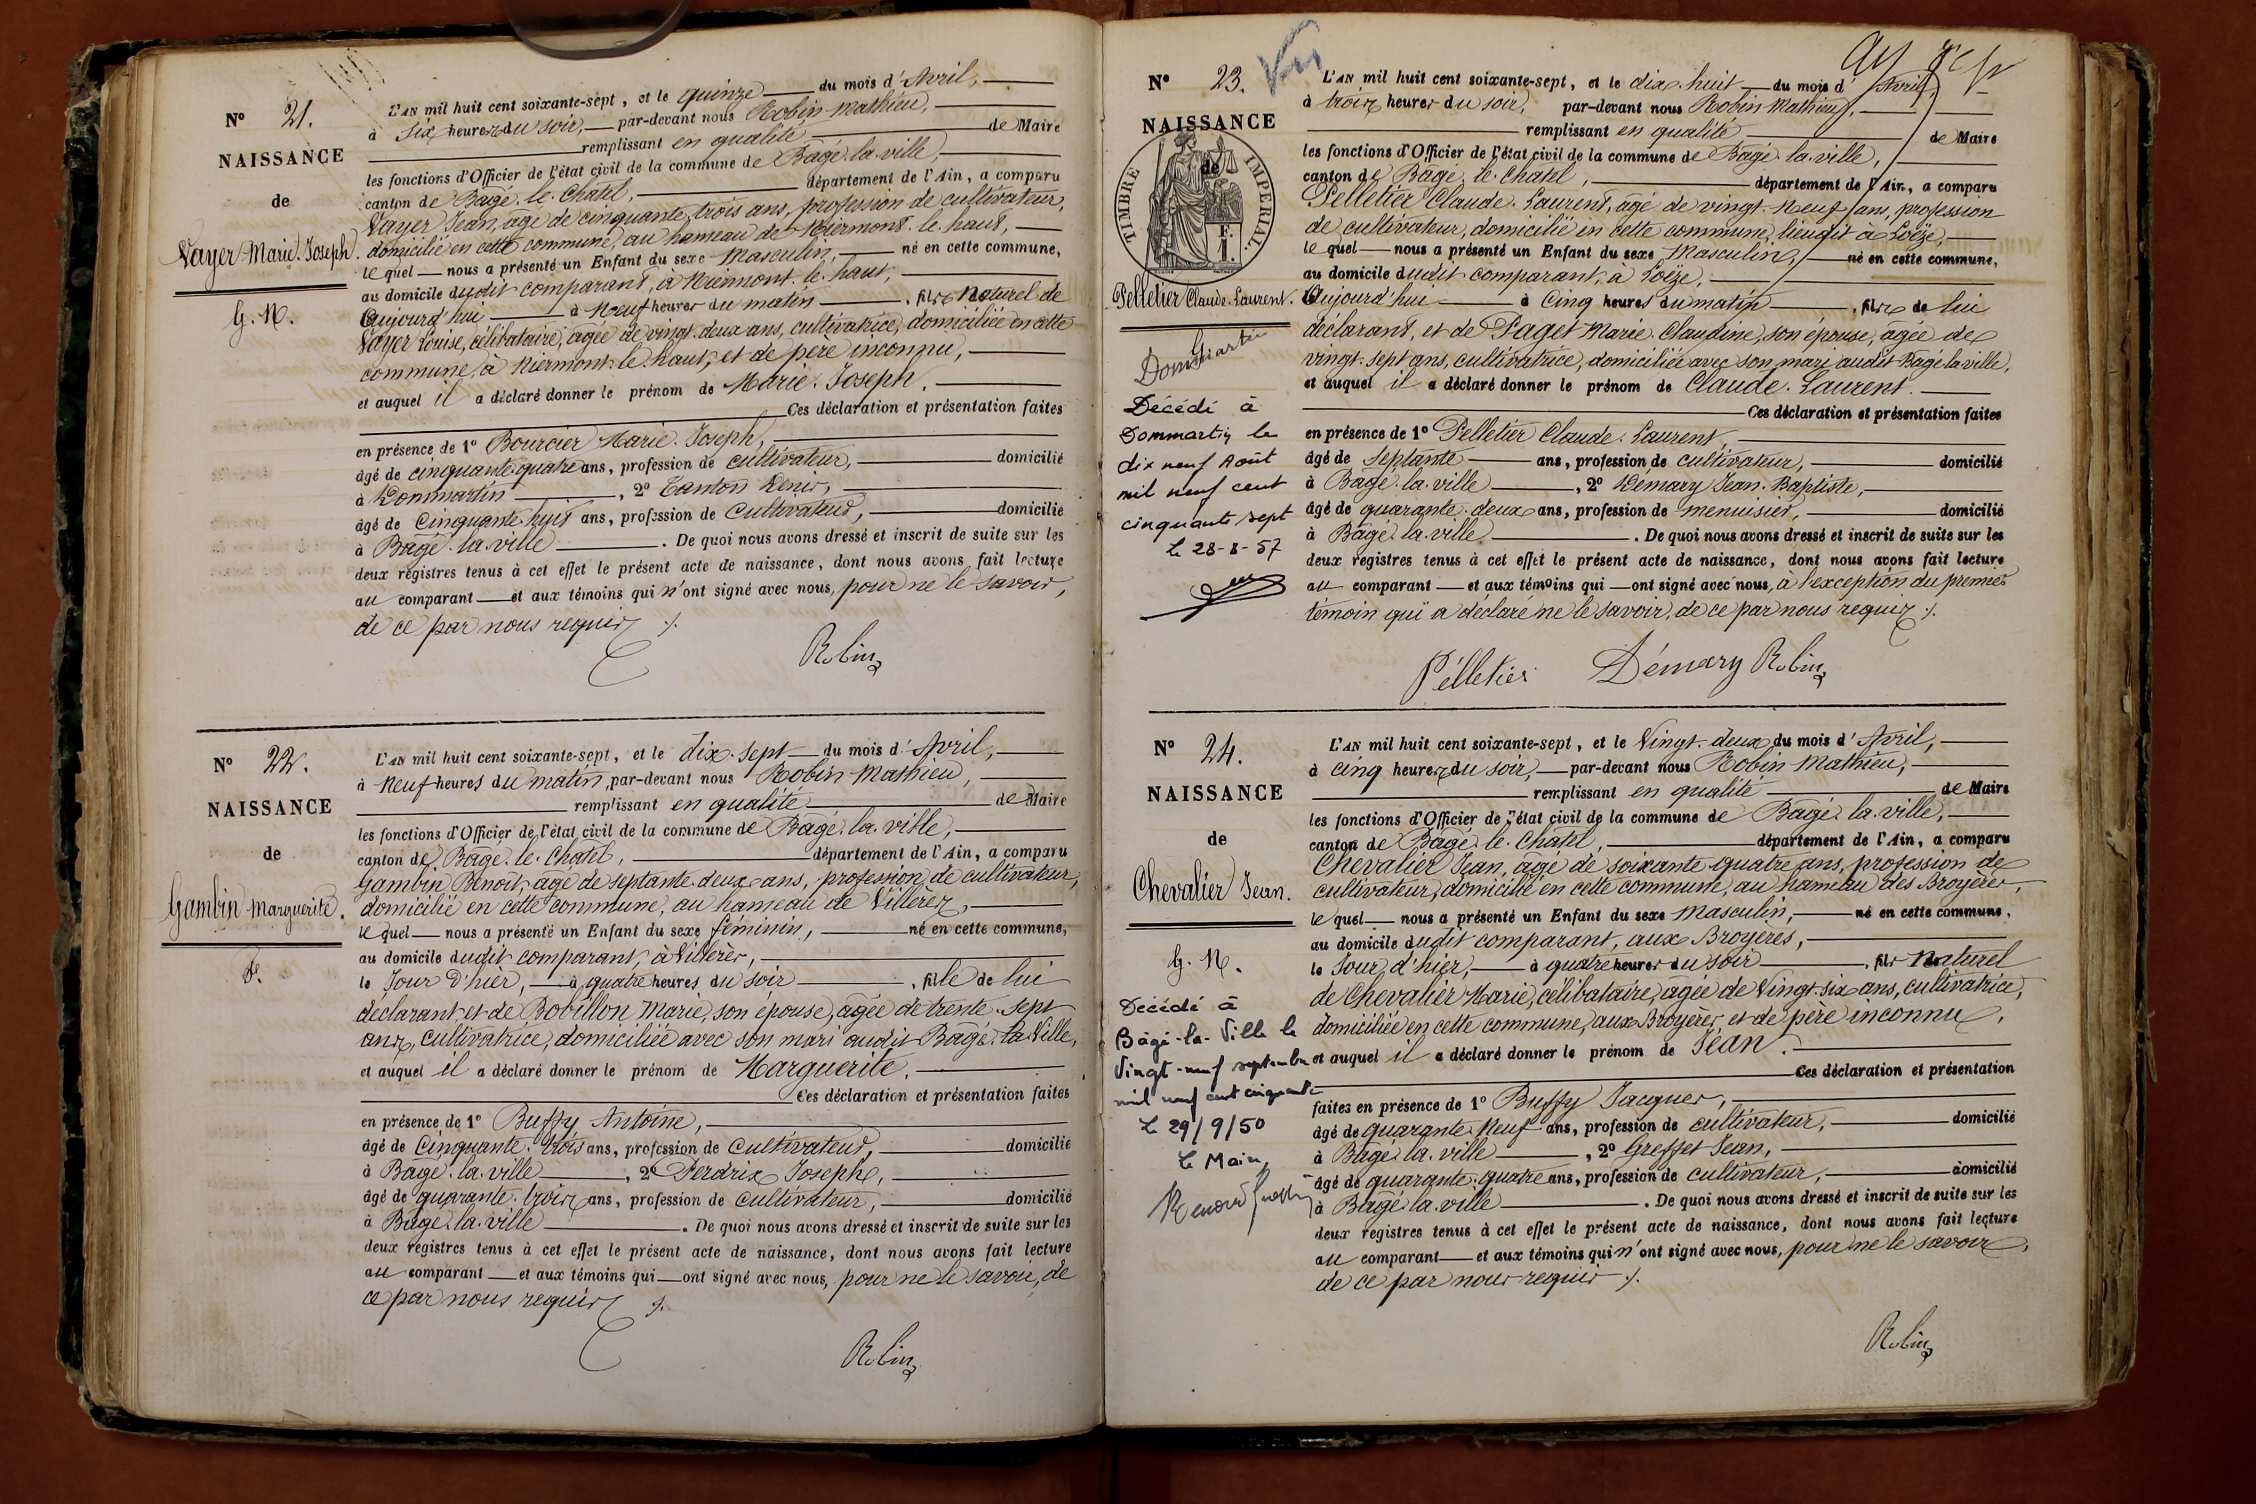 N° 21.
NAISSANCE
de
Vayer Marie. Joseph.
G. N.
L'AN mil huit cent soixante-sept, et le quinze du mois d'Avril,
à six heures du soir, par-devant nous Robin Mathieu,
remplissant en qualité de Maire
les fonctions d'Officier de l'état civil de la commune de Bâgé. la. ville,
canton de Bâgé. le. Chatel, département de l'Ain, a comparu
Vayer Jean, agé de cinquante trois ans, profession de cultivateur,
domicilié en cette commune, au hameau de Niermont. le haut,
le quel nous a présenté un Enfant du sexe Masculin, né en cette commune,
au domicile dudit comparant, à Niermont. le. haut,
Aujourd'hui à Neuf heures du matin, fils Naturel de
Vayer Louise, célibataire, agée de vingt. deux ans, cultivatrice, domiciliée en cette
commune, à Niermont. le haut, et de père inconnu,
et auquel il a déclaré donner le prénom de Marie. Joseph.
Ces déclaration et présentation faites
en présence de 1° Bourcier Marie. Joseph,
âgé de cinquante quatre ans, profession de cultivateur, domicilié
à Dommartin, 2° Tanton Denis,
âgé de Cinquante. huit ans, profession de Cultivateur, domicilié
à Bâgé. la. ville. De quoi nous avons dressé et inscrit de suite sur les
deux registres tenus à cet effet le présent acte de naissance, dont nous avons fait lecture
au comparant et aux témoins qui n'ont signé avec nous, pour ne le savoir,
de ce par nous requis ./.
Robin
N° 22.
NAISSANCE
de
Gambin Marguerite.
f.
L'AN mil huit cent soixante-sept, et le dix. sept du mois d'Avril,
à Neuf heures du matin, par-devant nous Robin Mathieu,
remplissant en qualité de Maire
les fonctions d'Officier de l'état civil de la commune de Bâgé. la. ville,
canton de Bâgé. le. Chatel, département de l'Ain, a comparu
Gambin Benoit, agé de septante. deux ans, profession de cultivateur,
domicilié en cette commune, au hameau de Villerèz,
le quel nous a présenté un Enfant du sexe féminin, né en cette commune,
au domicile dudit comparant, à Villerès,
le Jour d'hier, à quatre heures du soir, fille de lui
déclarant et de Bobillon Marie, son épouse, agée de trente. sept
ans, cultivatrice, domiciliée avec son mari audit Bâgé. la. Ville,
et auquel il a déclaré donner le prénom de Marguerite.
Ces déclaration et présentation faites
en présence de 1° Buffy Antoine,
âgé de Cinquante. trois ans, profession de Cultivateur, domicilié
à Bâgé. la. ville, 2° Perdrix Joseph,
âgé de quarante. trois ans, profession de cultivateur, domicilié
à Bâgé. la. ville. De quoi nous avons dressé et inscrit de suite sur les
deux registres tenus à cet effet le présent acte de naissance, dont nous avons fait lecture
au comparant et aux témoins qui ont signé avec nous, pour ne le savoir, de
ce par nous requis ./.
Robin
N° 23.
NAISSANCE
de
TIMBRE IMPERIAL.
F.
1.
Pelletier Claude. Laurent.
G
Dommartin
Décédé à
Dommartin le
dix neuf Août
mil neuf cent
cinquante sept
Le 28-8-57
L'AN mil huit cent soixante-sept, et le dix. huit du mois d'Avril,
à trois heures du soir, par-devant nous Robin Mathieu,
remplissant en qualité de Maire
les fonctions d'Officier de l'état civil de la commune de Bâgé. la. ville,
canton de Bâgé. le. Chatel, département de l'Ain, a comparu
Pelletier Claude. Laurent, agé de vingt. Neuf ans, profession
de cultivateur, domicilié en cette commune, lieudit à Loëze,
le quel nous a présenté un Enfant du sexe Masculin, né en cette commune,
au domicile dudit comparant, à Loëze,
Aujourd'hui à Cinq heures du matin, fils de lui
déclarant, et de Paget Marie. Claudine, son épouse, agée de
vingt. sept ans, cultivatrice, domiciliée avec son mari audit Bâgé la ville,
et auquel il a déclaré donner le prénom de Claude. Laurent.
Ces déclaration et présentation faites
en présence de 1° Pelletier Claude. Laurent,
âgé de septante ans, profession de cultivateur, domicilié
à Bâgé. la. ville, 2° Démary Jean. Baptiste,
âgé de quarante. deux ans, profession de menuisier, domicilié
à Bâgé. la. ville. De quoi nous avons dressé et inscrit de suite sur les
deux registres tenus à cet effet le présent acte de naissance, dont nous avons fait lecture
au comparant et aux témoins qui ont signé avec nous, à l'exception du premier
témoin qui a déclaré ne le savoir, de ce par nous requis ./.
Pélletier Démary Robin
N° 24.
NAISSANCE
de
Chevalier Jean.
G. N.
Décédé à
Bâgé-la-Ville le
Vingt-neuf septembre
mil neuf cent cinquante
Le 29/9/50
Le Maire
L'AN mil huit cent soixante-sept, et le Vingt. deux du mois d'Avril,
à cinq heures du soir, par-devant nous Robin Mathieu,
remplissant en qualité de Maire
les fonctions d'Officier de l'état civil de la commune de Bâgé. la. ville,
canton de Bâgé. le. Chatel, département de l'Ain, a comparu
Chevalier Jean, agé de soixante quatre ans, profession de
cultivateur, domicilié en cette commune, au hameau des Broyères,
le quel nous a présenté un Enfant du sexe Masculin, né en cette commune,
au domicile dudit comparant, aux Broyères,
le Jour d'hier, à quatre heures du soir, fils Naturel
de Chevalier Marie, célibataire, agée de Vingt. six ans, cultivatrice,
domiciliée en cette commune, aux Broyères, et de père inconnu,
et auquel il a déclaré donner le prénom de Jean.
Ces déclaration et présentation
faites en présence de 1° Buffy Jacques,
âgé de quarante. Neuf ans, profession de cultivateur, domicilié
à Bâgé. la. ville, 2° Greffet Jean,
âgé de quarante. quatre ans, profession de cultivateur, domicilié
à Bâgé. la ville. De quoi nous avons dressé et inscrit de suite sur les
deux registres tenus à cet effet le présent acte de naissance, dont nous avons fait lecture
au comparant et aux témoins qui n'ont signé avec nous, pour ne le savoir,
de ce par nous requis ./.
Robin